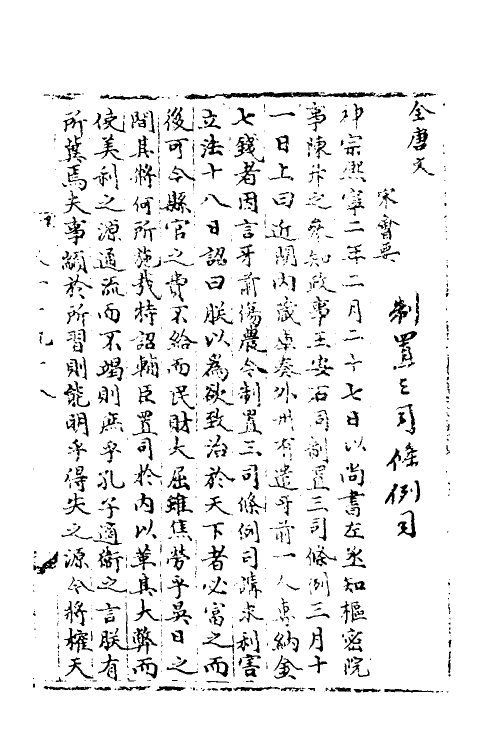 全唐文
宋會要
制置三司條例司
神宗熙寧二年二月二十七日以尚書左丞知樞密院
事陳升之參知政事王安石同制置三司條例三月十
一日上曰近閱內藏庫奏外州有遣牙前一人專納金
七錢者因言牙前傷農令制置三司條例司講求利害
立法十八日詔曰朕以為欲致治於天下者必富之而
後可今縣官之費不給而民財大屈雖焦勞乎昃日之
間其將何所施哉特詔輔臣置司於內以革其大弊而
使美利之源通流而不竭則庶乎孔子適衛之言朕有
所冀焉夫事顓於所習則能明乎得失之源今將權天